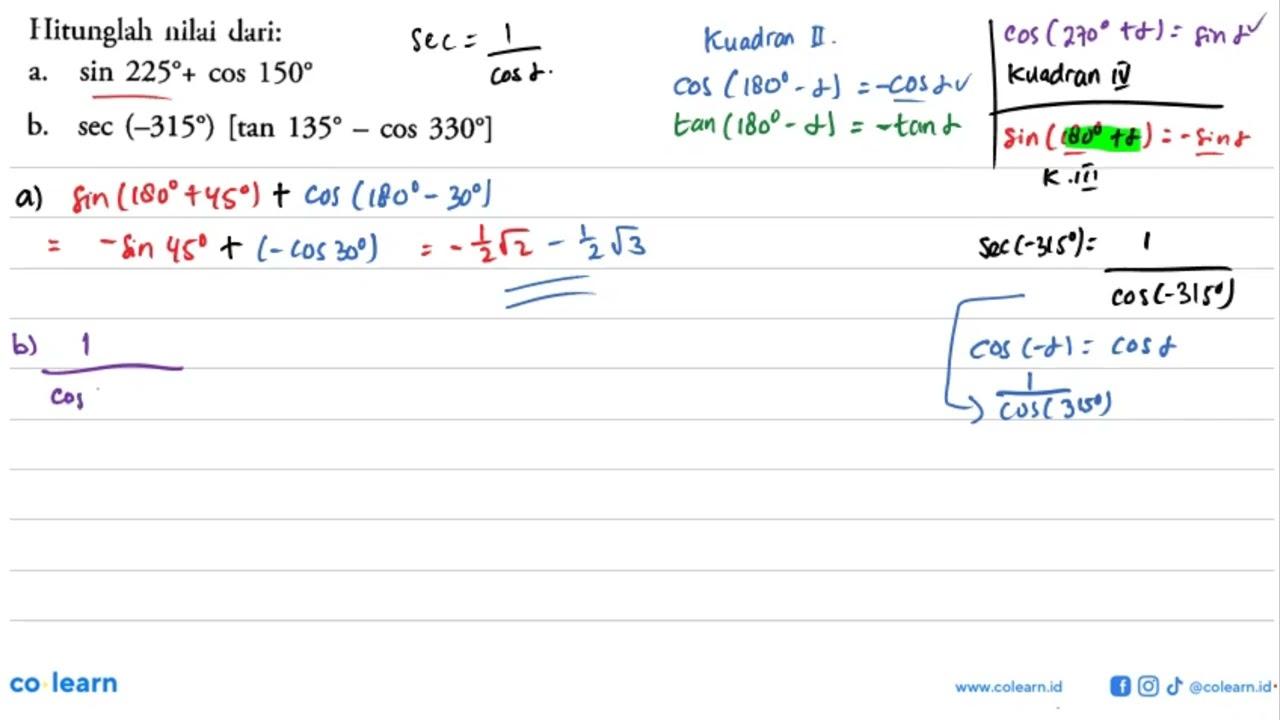 Hitunglah nilai dari:
a. sin 225°+ cos 150°
b. sec (–315°) [tan 135° – cos 330°]
sec = 1/cos α.
Kuadran II.
cos (180° - α) = -cos α ✓
tan (180° - α) = -tan α
cos (270° + α) = sin α ✓
Kuadran IV
sin (180° + α) = -sin α
K.III
a) sin (180° + 45°) + cos (180° - 30°)
= -sin 45° + (-cos 30°) = -1/2 √2 - 1/2 √3
sec (-315°) = 1/cos (-315°)
cos (-α) = cos α
1/cos (315°)
b) 1/cos
co learn
www.colearn.id
@colearn.id